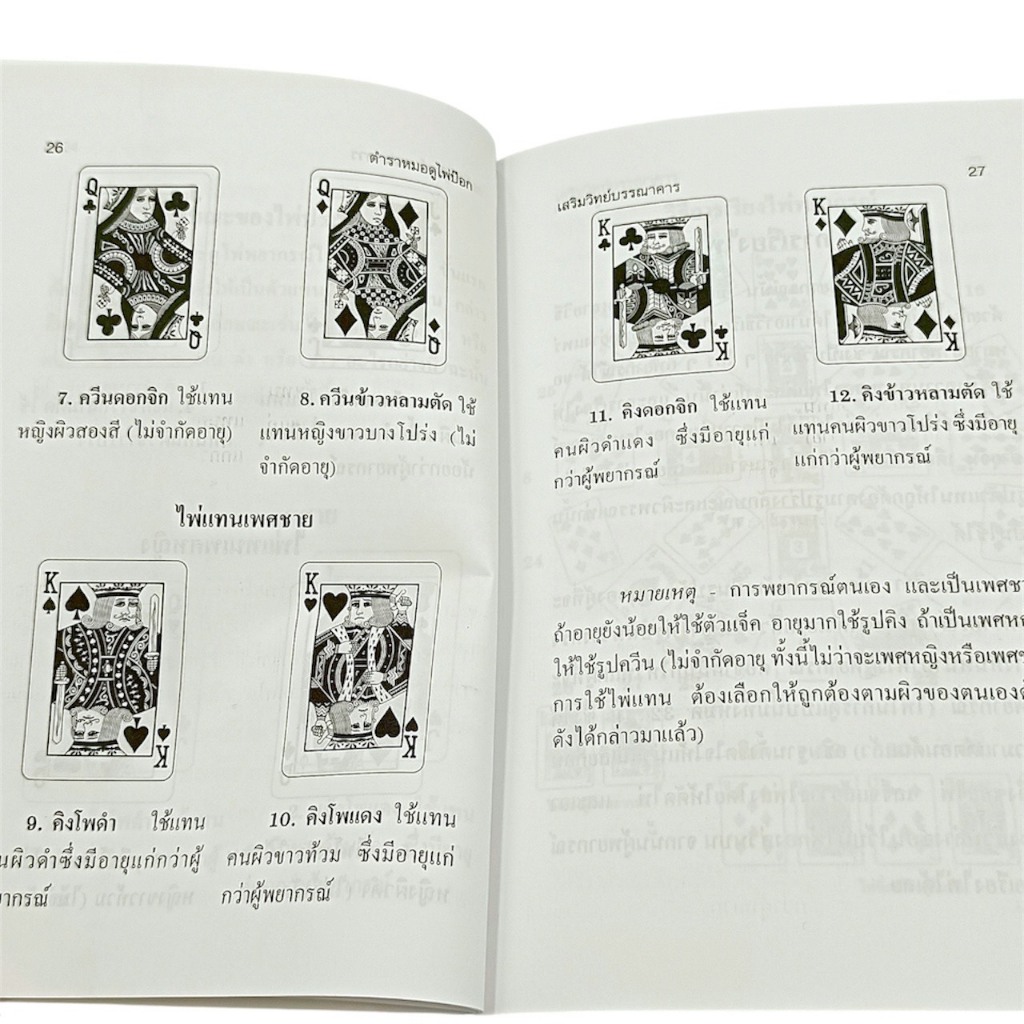 26
ตำราหมอดูไพ่ป๊อก
Q
Q
Q
Q
7. ควีนดอกจิก ใช้แทน
หญิงผิวสองสี (ไม่จำกัดอายุ)
8. ควีนข้าวหลามตัด ใช้
แทนหญิงขาวบางโปร่ง (ไม่
จำกัดอายุ)
ไพ่แทนเพศชาย
K
K
K
K
9. คิงโพดำ ใช้แทน
คนผิวดำซึ่งมีอายุแก่กว่าผู้
พยากรณ์
10. คิงโพแดง ใช้แทน
คนผิวขาวท้วม ซึ่งมีอายุแก่
กว่าผู้พยากรณ์
เสริมวิทย์บรรณาคาร
27
K
K
K
K
11. คิงดอกจิก ใช้แทน
คนผิวดำแดง ซึ่งมีอายุแก่
กว่าผู้พยากรณ์
12. คิงข้าวหลามตัด ใช้
แทนคนผิวขาวโปร่ง ซึ่งมีอายุ
แก่กว่าผู้พยากรณ์
หมายเหตุ - การพยากรณ์ตนเอง และเป็นเพศชา
ถ้าอายุยังน้อยให้ใช้ตัวแจ็ค อายุมากใช้รูปคิง ถ้าเป็นเพศห
ให้ใช้รูปควีน (ไม่จำกัดอายุ ทั้งนี้ไม่ว่าจะเพศหญิงหรือเพศช
การใช้ไพ่แทน ต้องเลือกให้ถูกต้องตามผิวของตนเอง
ดังได้กล่าวมาแล้ว)